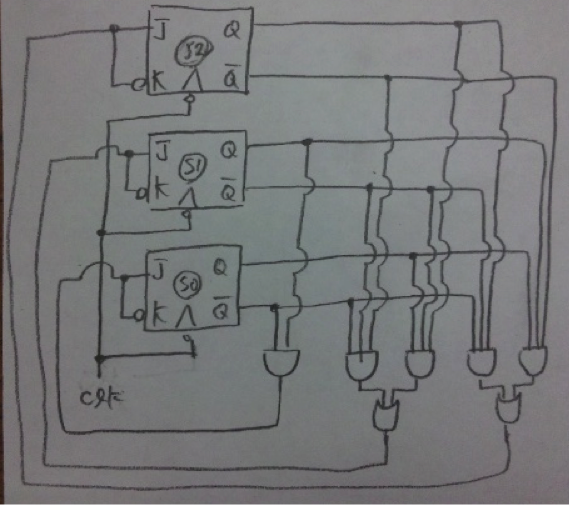 J Q
S2
K Q̅
J Q
S1
K Q̅
J Q
S0
K Q̅
clk